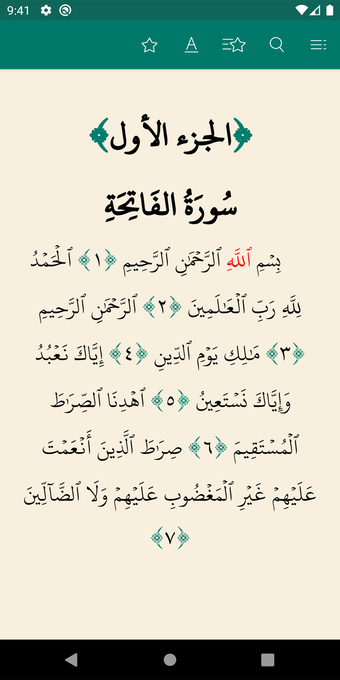 9:41
A
﴿الجزء الأول﴾
سُورَةُ الفَاتِحَةِ
بِسْمِ ٱللَّهِ ٱلرَّحْمَٰنِ ٱلرَّحِيمِ ﴿١﴾ ٱلْحَمْدُ
لِلَّهِ رَبِّ ٱلْعَٰلَمِينَ ﴿٢﴾ ٱلرَّحْمَٰنِ ٱلرَّحِيمِ
﴿٣﴾ مَٰلِكِ يَوْمِ ٱلدِّينِ ﴿٤﴾ إِيَّاكَ نَعْبُدُ
وَإِيَّاكَ نَسْتَعِينُ ﴿٥﴾ ٱهْدِنَا ٱلصِّرَٰطَ
ٱلْمُسْتَقِيمَ ﴿٦﴾ صِرَٰطَ ٱلَّذِينَ أَنْعَمْتَ
عَلَيْهِمْ غَيْرِ ٱلْمَغْضُوبِ عَلَيْهِمْ وَلَا ٱلضَّآلِّينَ
﴿٧﴾